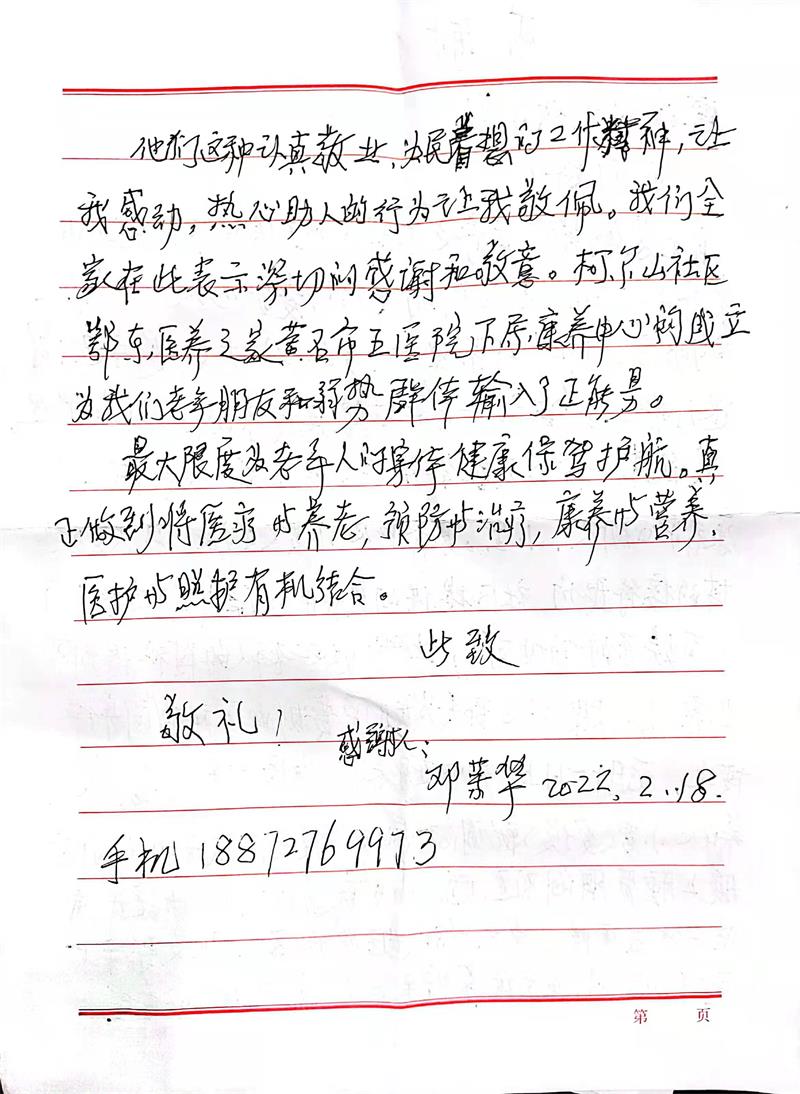 他们这种认真敬业,为民着想的工作精神,让
我感动,热心助人的行为让我敬佩。我们全
家在此表示深切的感谢和敬意。柯尔山社区
鄂东医养之家黄石市五医院下属康养中心的成立
为我们老年朋友和弱势群体输入了正能量。
最大限度为老年人的身体健康保驾护航。真
正做到将医疗与养老,预防与治疗,康养与营养,
医护与照护有机结合。
此致
敬礼!
感谢人:
邓荣华 2022.2.18.
手机 18872769973
第 页